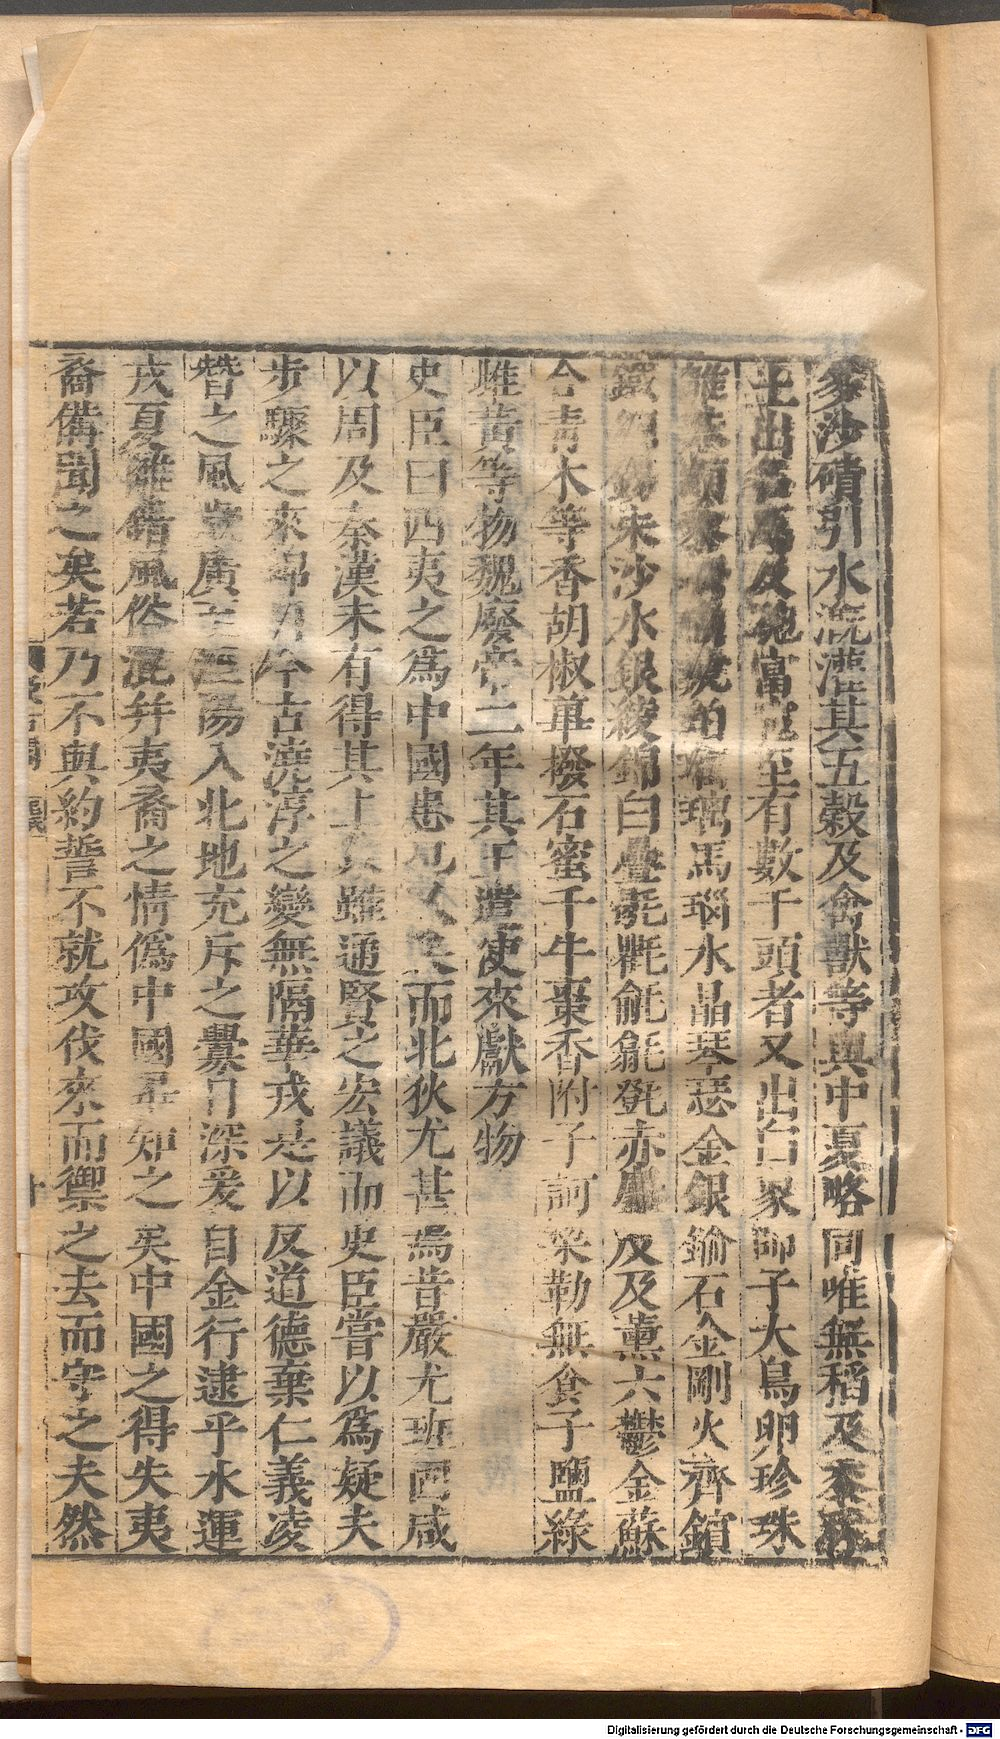 多沙磧引水漑灌其五穀及禽獸等與中夏略同唯無稻及黍秫
土出名馬及駝富室至有數千頭者又出白象師子大鳥卵珍珠
離珠頗黎珊瑚琥珀瑠璃馬瑙水晶琴瑟金銀鍮石金剛火齊鑌
鐵銅錫朱沙水銀綾錦白疊毼氍毹氀㲪赤麞皮及薰六鬱金蘇
合青木等香胡椒蓽撥石蜜千牛棗香附子訶梨勒無食子鹽綠
雌黃等物魏廢帝二年其王遣使來獻方物
史臣曰四夷之爲中國患也久矣而北狄尤甚焉昔嚴尤班固咸
以周及秦漢未有得其上策雖通賢之宏議而史臣嘗以爲疑夫
步驟之來綿乃今古澆淳之變無隔華戎是以反道德棄仁義凌
替之風歲廣至涇陽入北地充斥之釁日深爰自金行逮乎水運
戎夏雜錯風俗混并夷裔之情僞中國畢知之矣中國之得失夷
裔備聞之矣若乃不與約誓不就攻伐來而禦之去而守之夫然
Digitalisierung gefördert durch die Deutsche Forschungsgemeinschaft - DFG